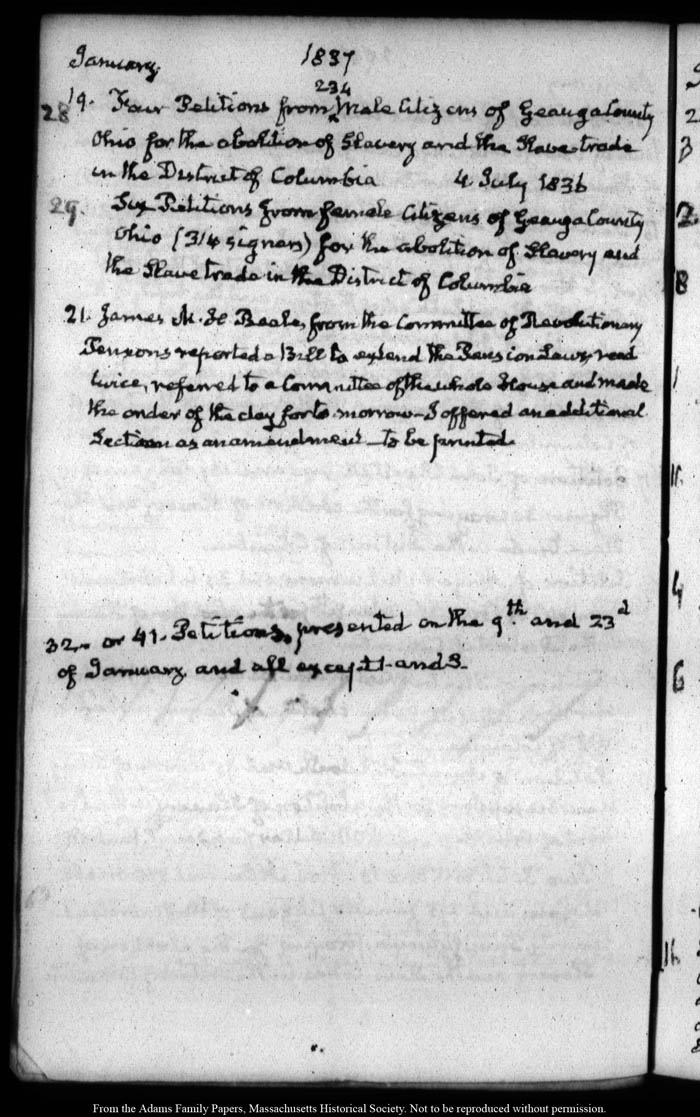 January.
1837
234
28
19. Four Petitions from Male Citizens of Geauga County
Ohio for the abolition of Slavery and the Slave trade
in the District of Columbia 4 July 1836
29.
Six Petitions from female Citizens of Geauga County
Ohio (314 signers) for the abolition of Slavery and
the Slave trade in the District of Columbia
21. James M. H Beale, from the Committee of Revolutionary
Pensions reported a Bill to extend the Pension Laws, read
twice, referred to a Committee of the whole House and made
the order of the day for to-morrow—I offered an additional
Section as an amendment—to be printed.
32. or 41. Petitions, presented on the 9th and 23d
of January and all except 1 and 3
From the Adams Family Papers, Massachusetts Historical Society. Not to be reproduced without permission.